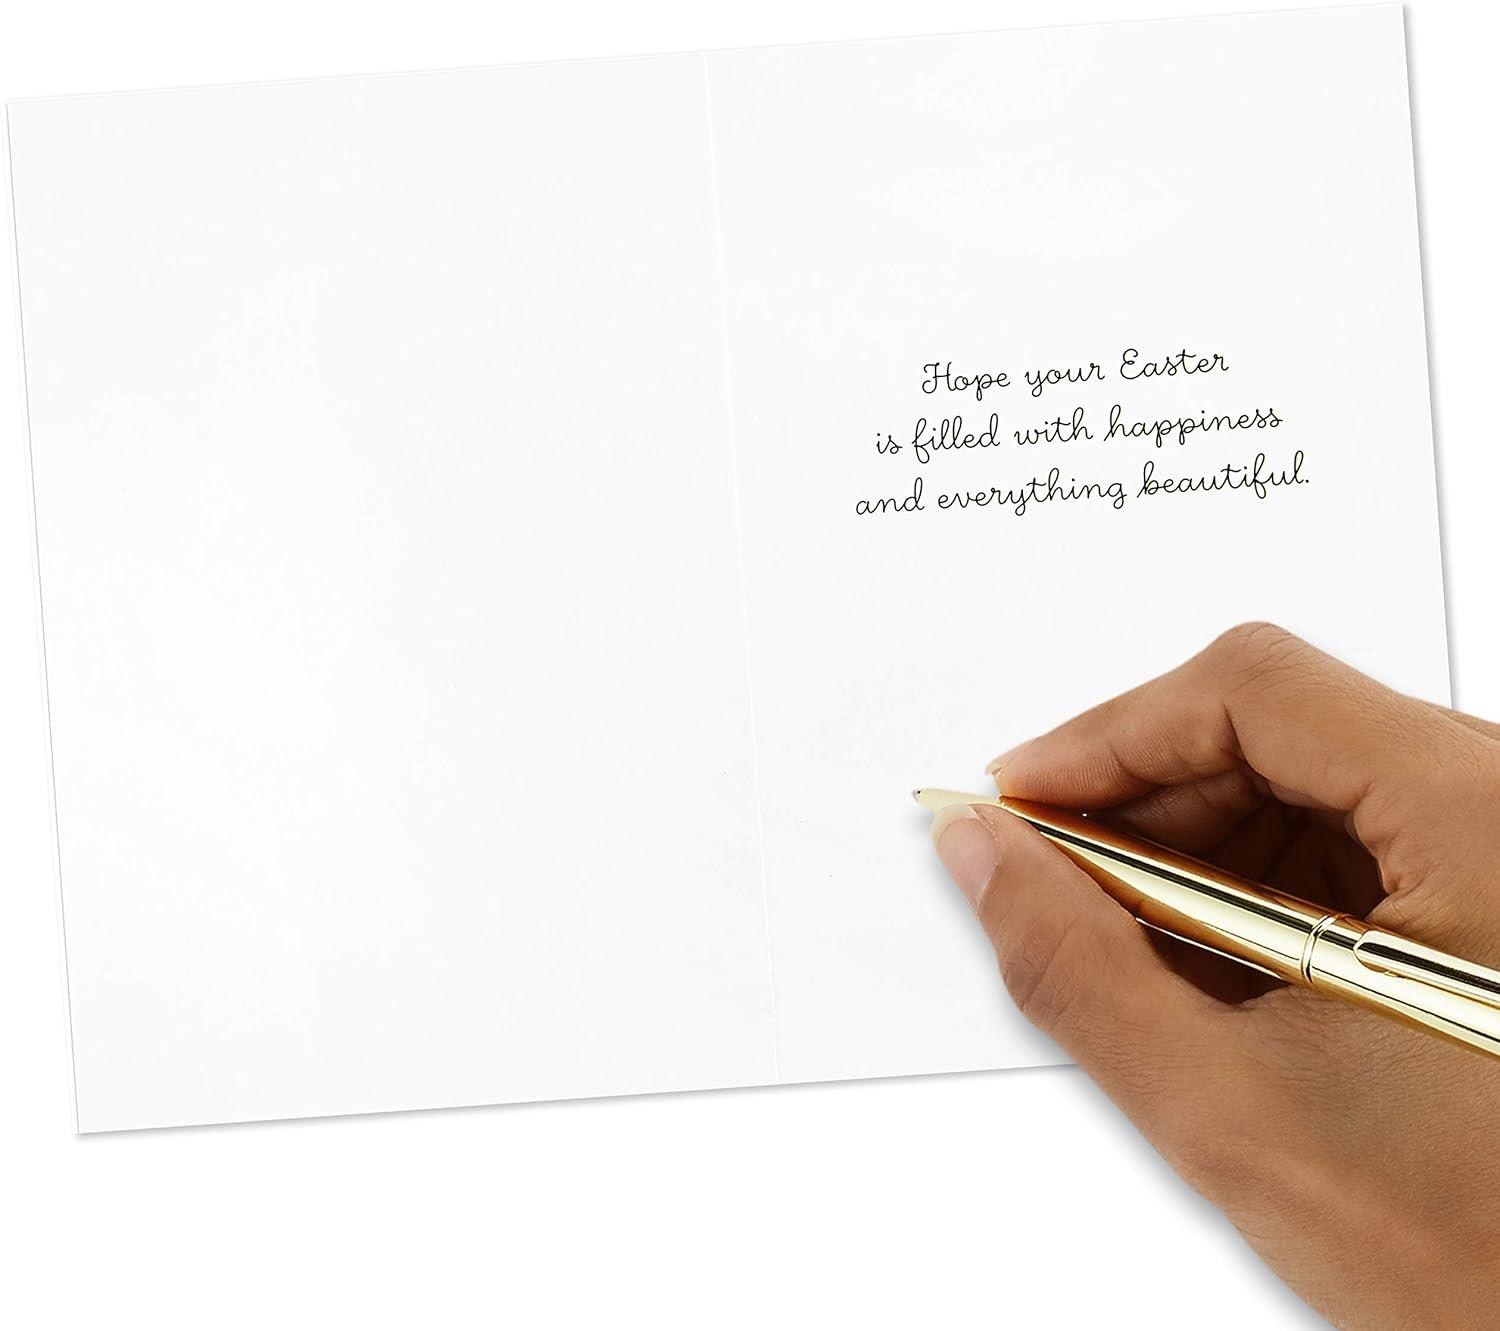 Hope your Easter
is filled with happiness
and everything beautiful.